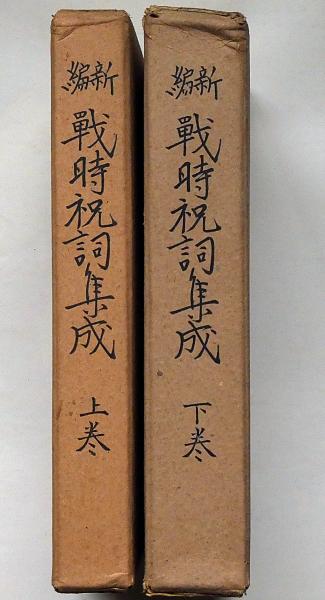 新編
戰時祝詞集成
上巻
新編
戰時祝詞集成
下巻